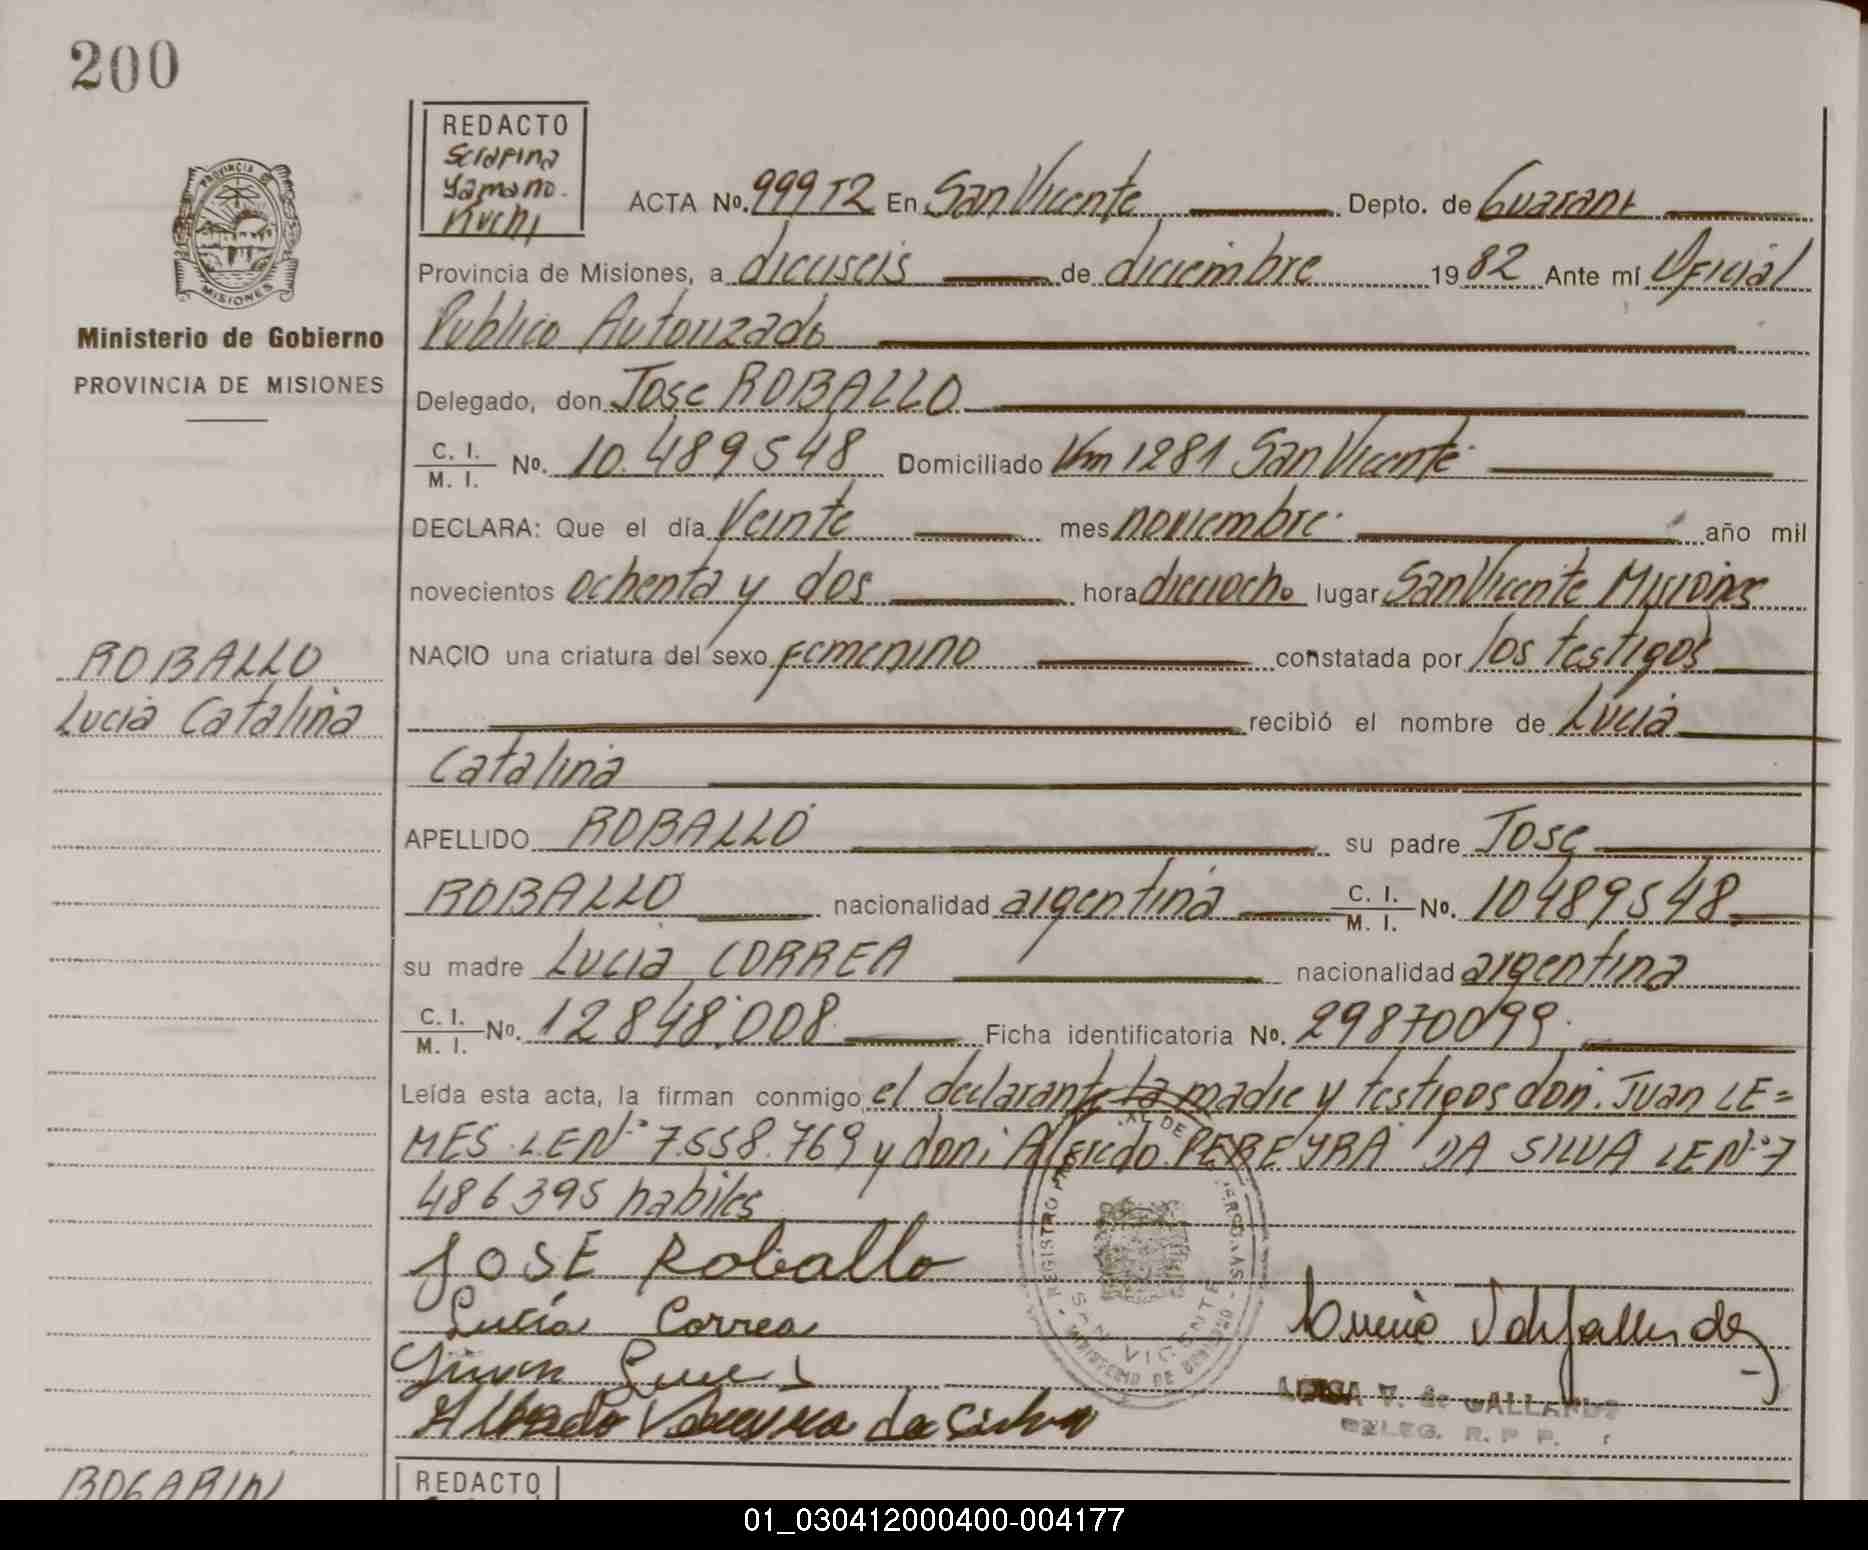 200
REDACTO
Serafina
Yamano.
Kuchi
PROVINCIA DE
MISIONES
Ministerio de Gobierno
PROVINCIA DE MISIONES
ACTA No. 999 T2 En San Vicente Depto. de Guarani
Provincia de Misiones, a dieciseis de diciembre 1982 Ante mí Oficial
Publico Autorizado
Delegado, don Jose ROBALLO
C. I.
M. I. No. 10.489548 Domiciliado Km 1281 San Vicente
DECLARA: Que el día Veinte mes noviembre. año mil
novecientos ochenta y dos hora dieciocho lugar San Vicente Misiones
NACIO una criatura del sexo femenino constatada por los testigos
recibió el nombre de Lucia
Catalina
ROBALLO
Lucia Catalina
APELLIDO ROBALLO su padre Jose
ROBALLO nacionalidad argentina C. I. M. I. No. 10489548
su madre Lucia CORREA nacionalidad argentina
C. I. M. I. No. 12848.008 Ficha identificatoria No. 29870099
Leída esta acta, la firman conmigo el declarante la madre y testigos don. Juan LE=
MES LE N° 7.558.769 y don: Alfredo PEREYRA DA SILVA LE N° 7
486395 habiles
JOSE Roballo
Lucía Correa
Alfredo Pereyra da Silva
SAN VICENTE
GALLARDO
DELEG. R. P P.
BOGARIN
REDACTO
01_030412000400-004177